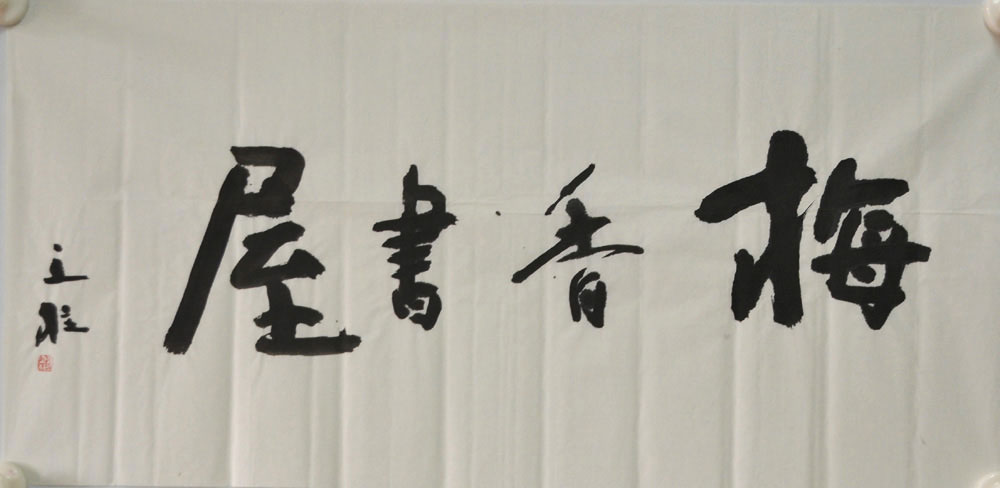 梅香書屋
立